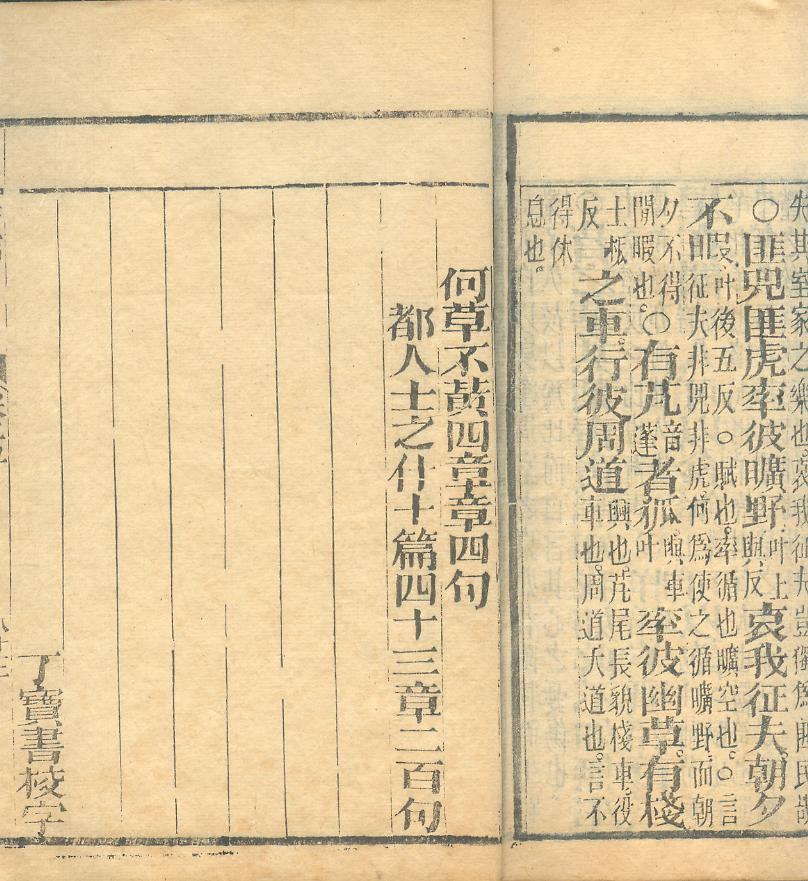 失其室家之樂也哀我征夫豈獨爲匪民哉
〇匪兕匪虎率彼曠野叶上與反哀我征夫朝夕
不暇叶後五反〇賦也率循也曠空也〇言征夫非兕非虎何爲使之循曠野而朝
夕不得閒暇也〇有芃音蓬者狐叶與車率彼幽草有棧
士板反之車行彼周道興也芃尾長貌棧車役車也周道大道也言不
得休息也
何草不黃四章章四句
都人士之什十篇四十三章二百句
丁寶書校字